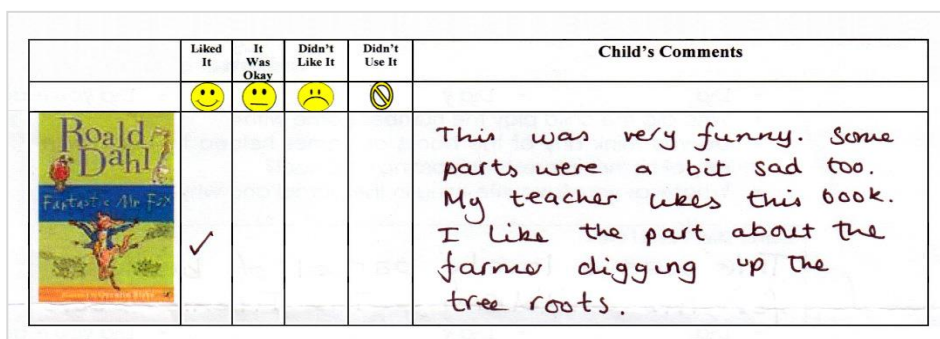 Liked It
It Was Okay
Didn't Like It
Didn't Use It
Child's Comments
Roald Dahl
Fantastic Mr Fox
This was very funny. Some
parts were a bit sad too.
My teacher likes this book.
I like the part about the
farmer digging up the
tree roots.